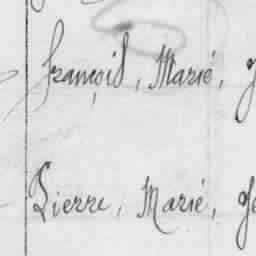 françois, Marié,
Pierre, Marié,